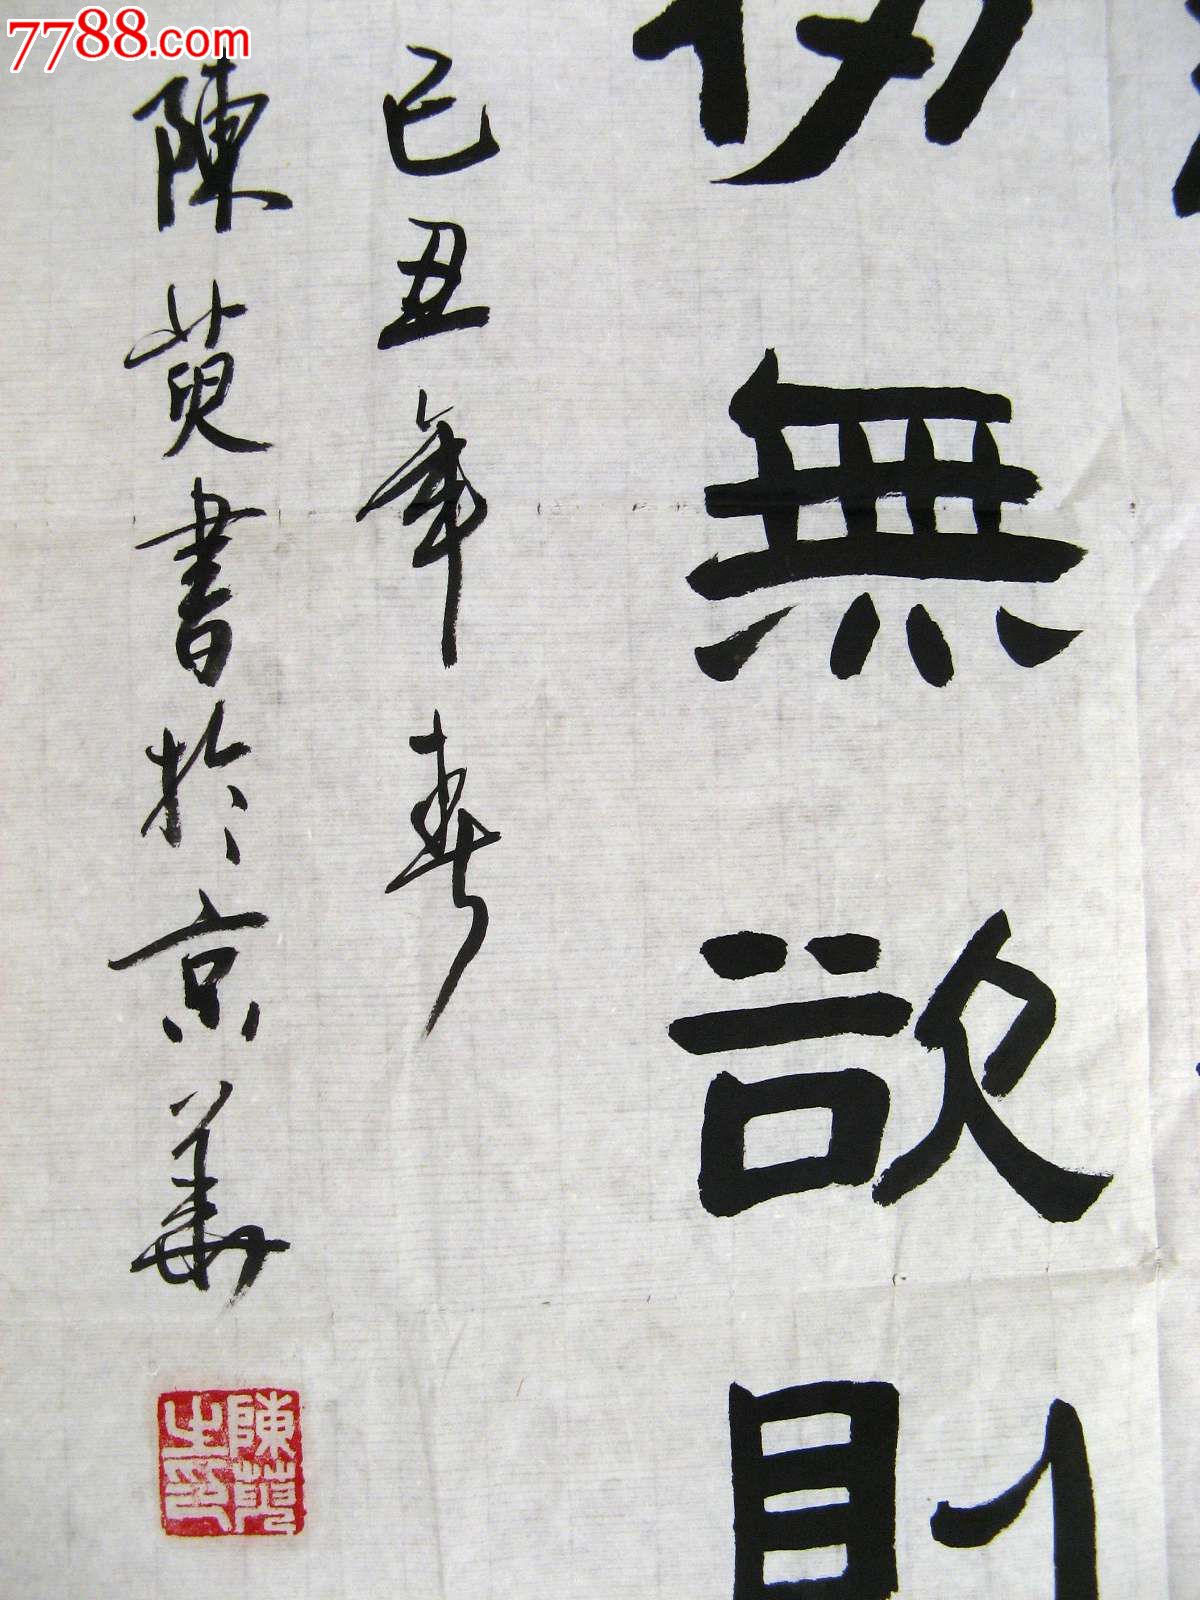 7788.com
仞無欲則
己丑年春
陳萸書於京華
陳萸
之印